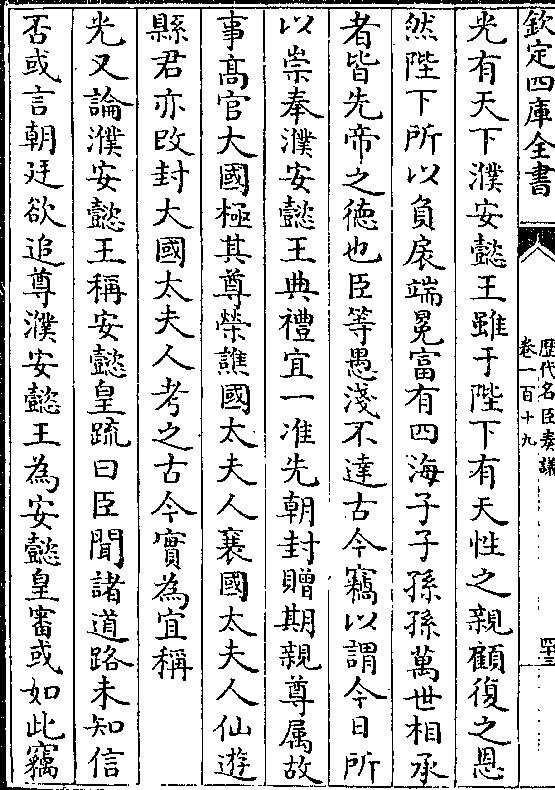 欽定四庫全書
歷代名臣奏議
卷一百十九
光有天下濮安懿王雖于陛下有天性之親顧復之恩
然陛下所以負扆端冕富有四海子子孫孫萬世相承
者皆先帝之徳也臣等愚淺不達古今竊以謂今日所
以崇奉濮安懿王典禮宜一准先朝封贈期親尊属故
事髙官大國極其尊榮譙國太夫人襄國太夫人仙遊
縣君亦改封大國太夫人考之古今實為宜稱
光又論濮安懿王稱安懿皇䟽曰臣聞諸道路未知信
否或言朝廷欲追尊濮安懿王為安懿皇審或如此竊